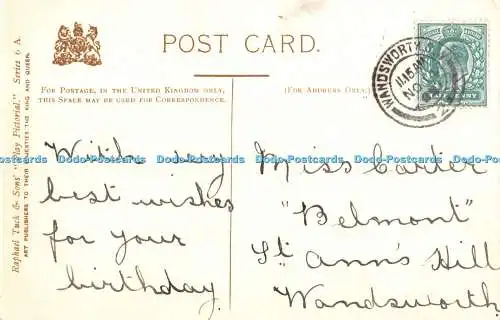 POST CARD.
FOR POSTAGE, IN THE UNITED KINGDOM ONLY,
THIS SPACE MAY BE USED FOR CORRESPONDENCE.
(FOR ADDRESS ONLY.)
Raphael Tuck & Sons' "Play Pictorial," Series 6 A.
ART PUBLISHERS TO THEIR MAJESTIES THE KING AND QUEEN.
WANDSWORTH.S
11.15AM
NO
With my
best wishes
for your
birthday
Miss Carter
"Belmont"
St. Ann's Hill
Wandsworth
Dodo-Postcards Dodo-Postcards Dodo-Postcards Dodo-Postcards Dodo-Postcards